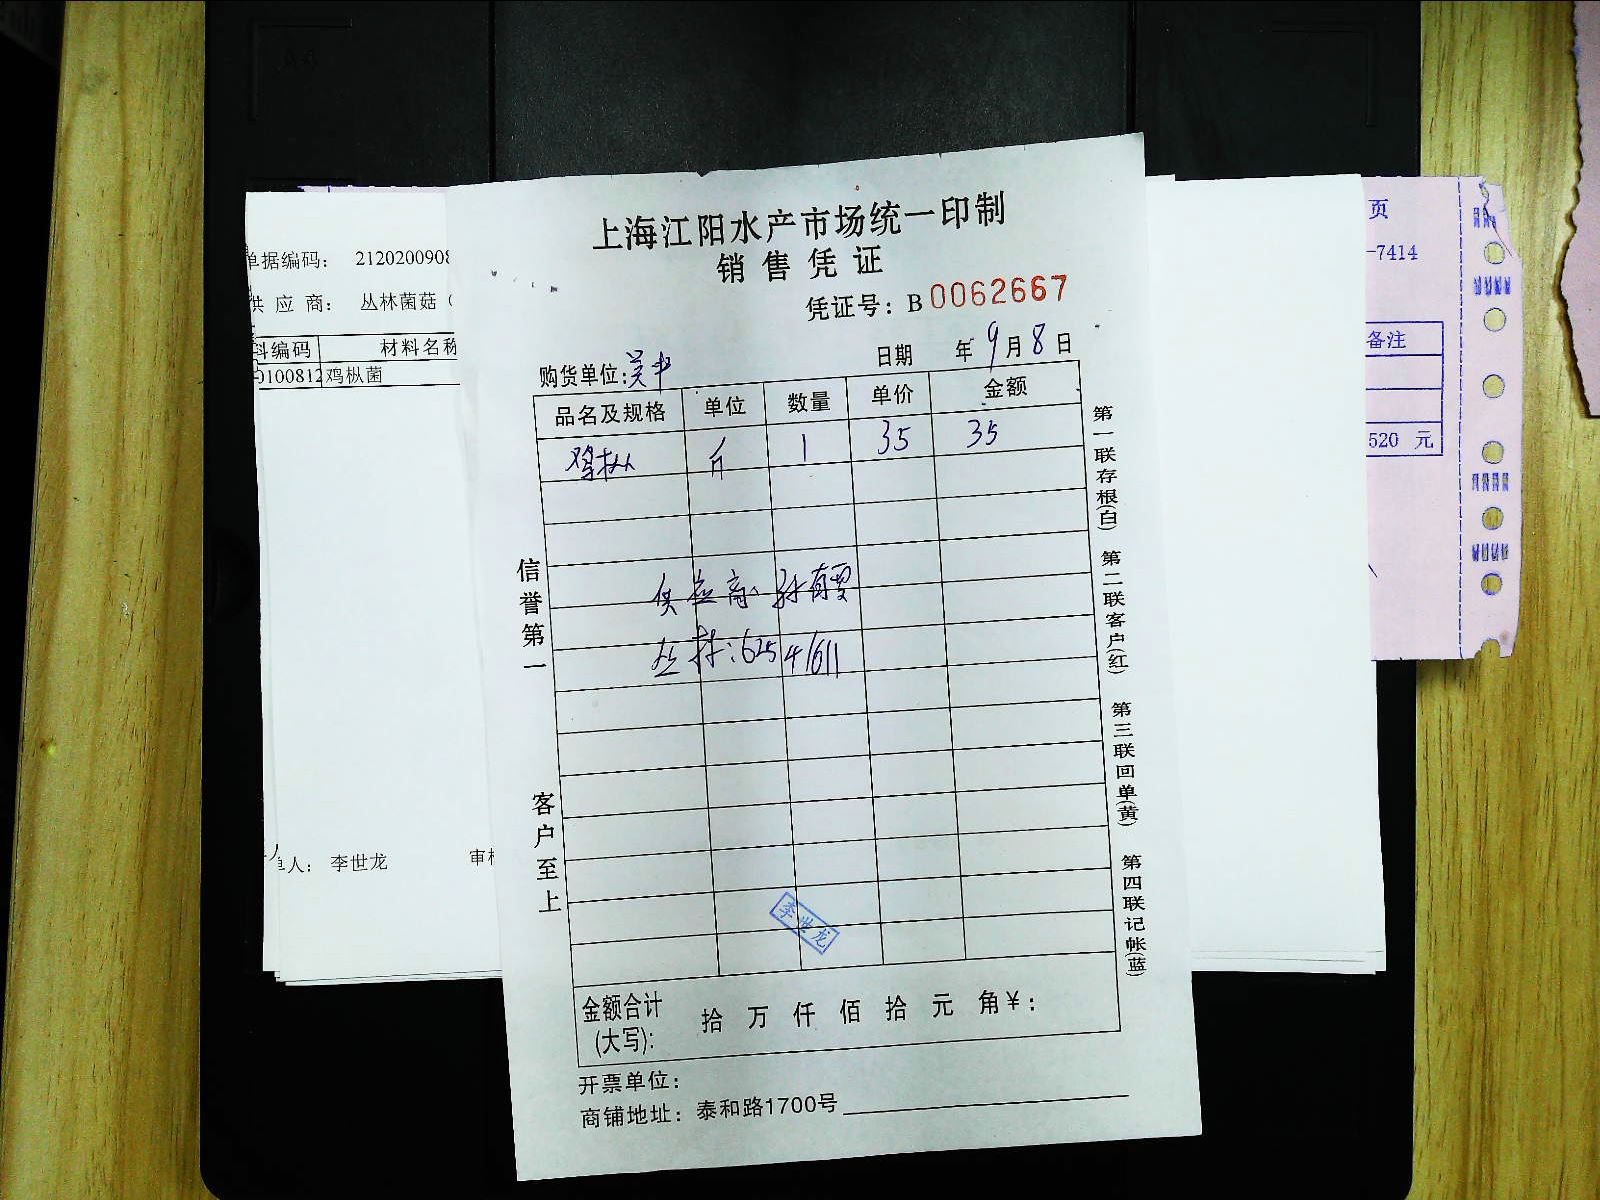 上海江阳水产市场统一印制
销售凭证
凭证号：B 0062667
购货单位： 日期 年9月8日
品名及规格 单位 数量 单价 金额
鸡枞 斤 1 35 35
供应商：孙有雪
丛林：62541611
李世龙
金额合计(大写)： 拾 万 仟 佰 拾 元 角￥：
开票单位：
商铺地址：泰和路1700号
信誉第一
客户至上
第一联存根(白) 第二联客户(红) 第三联回单(黄) 第四联记帐(蓝)
单据编码： 212020090
供应商： 丛林菌菇（
料编码 材料名称
0100812 鸡枞菌
单人： 李世龙 审
页
-7414
备注
520 元